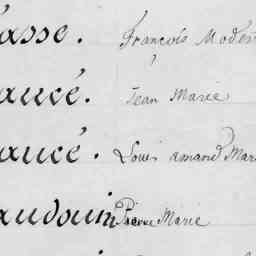 asse. François Moder
aucé. Jean Marie
aucé. Louis amand Mar
audouin Pierre Marie